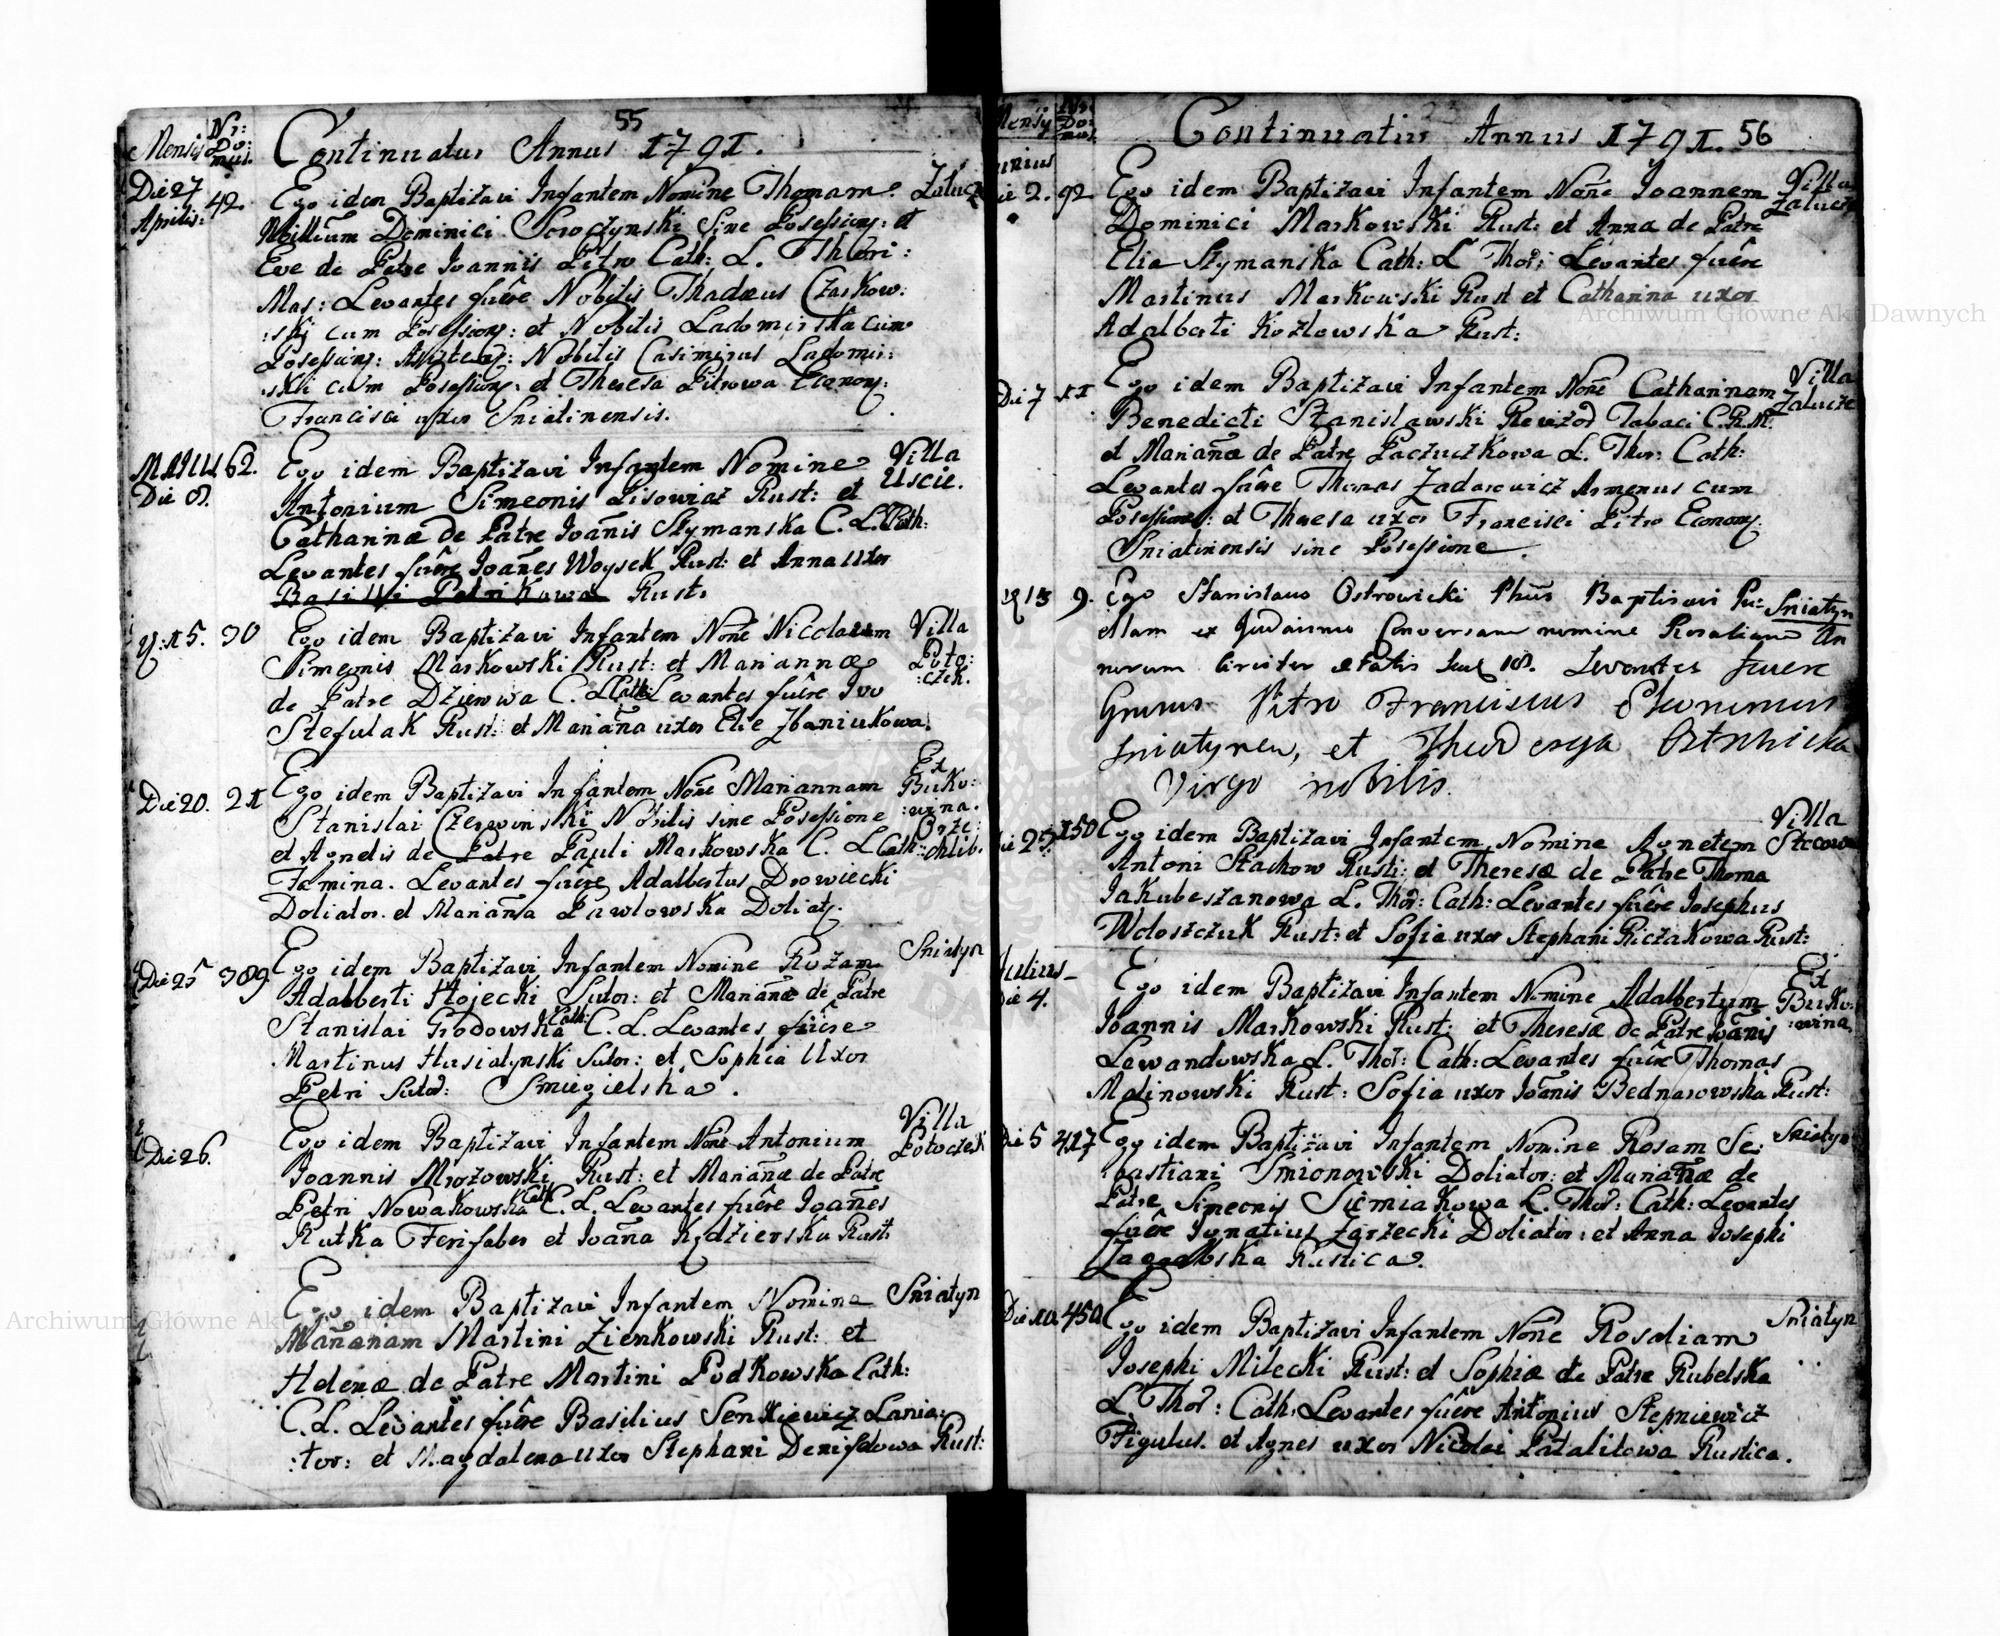 55
Mensis Nr: Do: mus. Continuatur Annus 1791.
Die 27 Aprilis: 42. Ego idem Baptizavi Infantem Nomine Thomam Zalucz
Dominici Sine Posessiony: et
Eve de Patre Joannis Pitro Cath: L.
Mas: Levantes fuêre Nobilis Thadæus Czarkow:
:skij cum Posessiony: et Nobilis Ladomirska cum
Posessiony: Nobilis Casimirus Ladomir:
:skli cum Posessiony. et Theresa Pitrowa Econom:
Francisci uxor Sniatinensis.
MAIUS 62. Ego idem Baptizavi Infantem Nomine Villa
Die 8. Antonium Simeonis Lisowicz Rust: et Uscie.
Catharinæ de Patre Joanis Szymanska C. L. Cath:
Levantes fuêre Joañes Woysek Rust: et Anna uxor
Basilii Petrikowa Rust:
15. 30 Ego idem Baptizavi Infantem Noñe Nicolaum Villa
Simeonis Markowski Rust: et Mariannæ Poto:
de Patre Dziewwa C. L. Cath: Levantes fuêre Ivo :czek.
Stefulak Rust: et Mariaña uxor Elie Zbaniukowa.
Die 20. 21 Ego idem Baptizavi Infantem Noñe Mariannam Ex Buko:
Stanislai Czerwinski Nobilis sine Posessione :wina.
et Agnetis de Patre Pauli Markowska C. L. Cath:
Femina. Levantes fuêre Adalbertus Drowiecki
Doliator. et Mariaña Pawlowska Doliat:
Die 25 309 Ego idem Baptizavi Infantem Nomine Rozam Sniatyn
Adalberti Hojecki Sutor: et Mariañæ de Patre
Stanislai Grodowska Cath: C. L. Levantes fuêre
Martinus Husiatynski Sutor: et Sophia Uxor
Petri Sutor: Smugielska.
Die 26. Ego idem Baptizavi Infantem Noñe Antonium Villa
Joannis Mrozowski Rust: et Mariañæ de Patre Potoczek
Petri Nowakowska Cath: C. L. Levantes fuêre Joañes
Rutka Ferifaber et Joaña Kędzierska Rust:
Ego idem Baptizavi Infantem Nomine Sniatyn
Mañanam Martini Zienkowski Rust: et
Helenæ de Patre Martini Podkowska Cath:
C. L. Levantes fuêre Basilius Senkiewicz Lania:
:tor: et Magdalena uxor Stephani Rust:
Mensis Nr: Do: mus. Continuatur Annus 1791. 56
unius
Die 2. 92 Ego idem Baptizavi Infantem Noñe Joannem Villa
Dominici Markowski Rust: et Anna de Patre Zalucze
Elia Szymanska Cath: L. Thor: Levantes fuêre
Martinus Markowski Rust et Catharina uxor
Adalberti Kozlowska Rust:
Die 7 11 Ego idem Baptizavi Infantem Noñe Catharinam Villa
Benedicti Stanislawski Revizor Tabaci C. R. M. Zalucze
et Mariañæ de Patre Paczuczkowa L. Thor: Cath:
Levantes fuêre Thomas Zadarowicz Armenus cum
Posessione: et Theresa uxor Francisci Pitro Econom:
Sniatinensis sine Posessione.
13 9. Ego Stanislaus Ostrowicki Baptisavi Pu: Sniatyn
ellam ex Judaismo Conversam nomine Rosaliam An
norum circiter etatis suæ 18. Levantes fuere
Pitro Franciscus
et Ostrowicka
Virgo nobilis.
23 150 Ego idem Baptizavi Infantem Nomine Agnetem Villa
Antoni Stachow Rusti: et Theresæ de Patre Thoma
Jakubeszanowa L. Thor: Cath: Levantes fuêre Josephus
Woloszczuk Rust: et Sofia uxor Stephani Riczakowa Rust:
Julius
Die 4. Ego idem Baptizavi Infantem Nomine Adalbertum Ex Buko:
Joannis Markowski Rust: et Theresæ de Patre Joanis :wina.
Lewandowska L. Thor: Cath: Levantes fuêre Thomas
Malinowski Rust: Sofia uxor Joanis Bednarowska Rust:
Die 5 417 Ego idem Baptizavi Infantem Nomine Rosam Se: Sniatyn
bastiani Smionowski Doliator: et Mariañæ de
Patre Simeonis L. Thor: Cath: Levantes
fuêre Ignatius Zarzecki Doliator: et Anna Josephi
Rustica.
Die 10. 450 Ego idem Baptizavi Infantem Noñe Rosaliam Sniatyn
Josephi Milecki Rust: et Sophiæ de Patre Rubelska
L. Thor: Cath: Levantes fuêre Antonius Stepniewicz
Figulus. et Agnes uxor Nicolai Patalitowa Rustica.
Archiwum Główne Akt Dawnych
Archiwum Główne Akt Dawnych